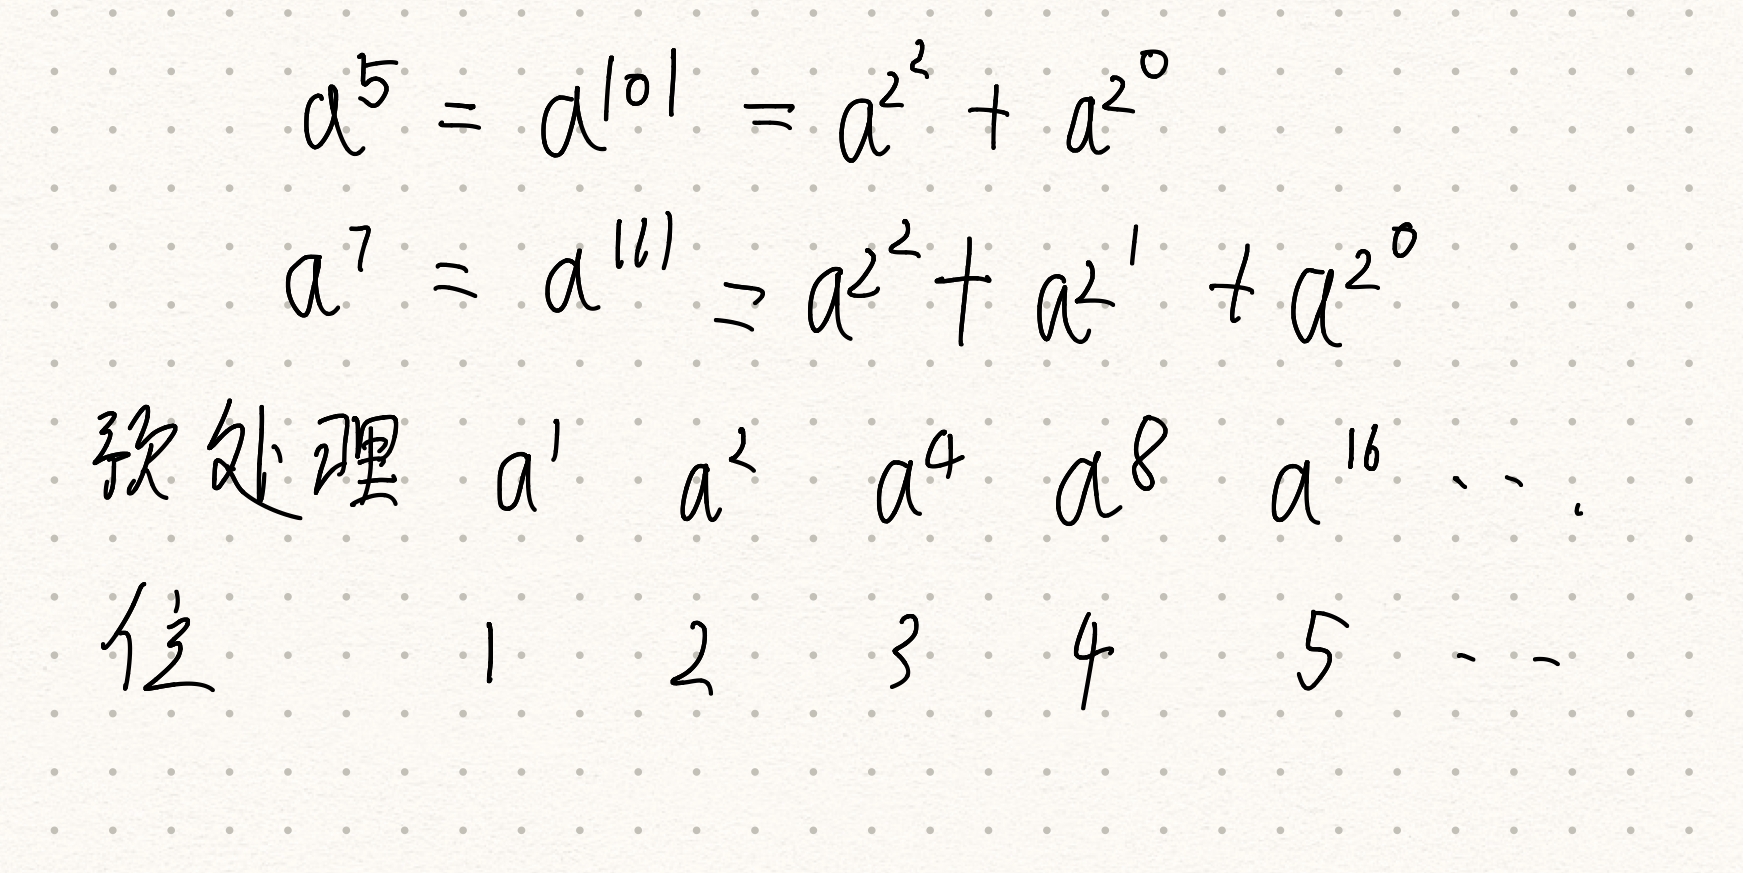 a⁵ = a¹⁰¹ = a^2^2 + a^2^0
a⁷ = a¹¹¹ = a^2^2 + a^2^1 + a^2^0
预处理 a¹ a² a⁴ a⁸ a¹⁶ ...
位 1 2 3 4 5 ..